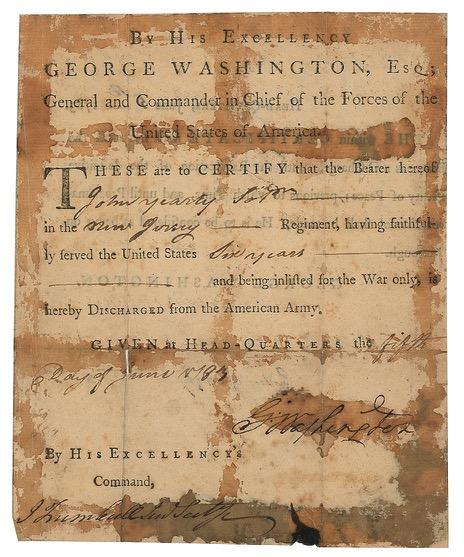 By His Excellency
GEORGE WASHINGTON, Esq;
General and Commander in Chief of the Forces of the
United States of America.
THESE are to CERTIFY that the Bearer hereof
John
in the New Jersey Regiment, having faithful-
ly served the United States Six years
and being inlisted for the War only, is
hereby Discharged from the American Army.
GIVEN at Head-Quarters the fifth
Day of June 1783
GWashington
By His Excellency's
Command,
J Trumbull Jun Secy